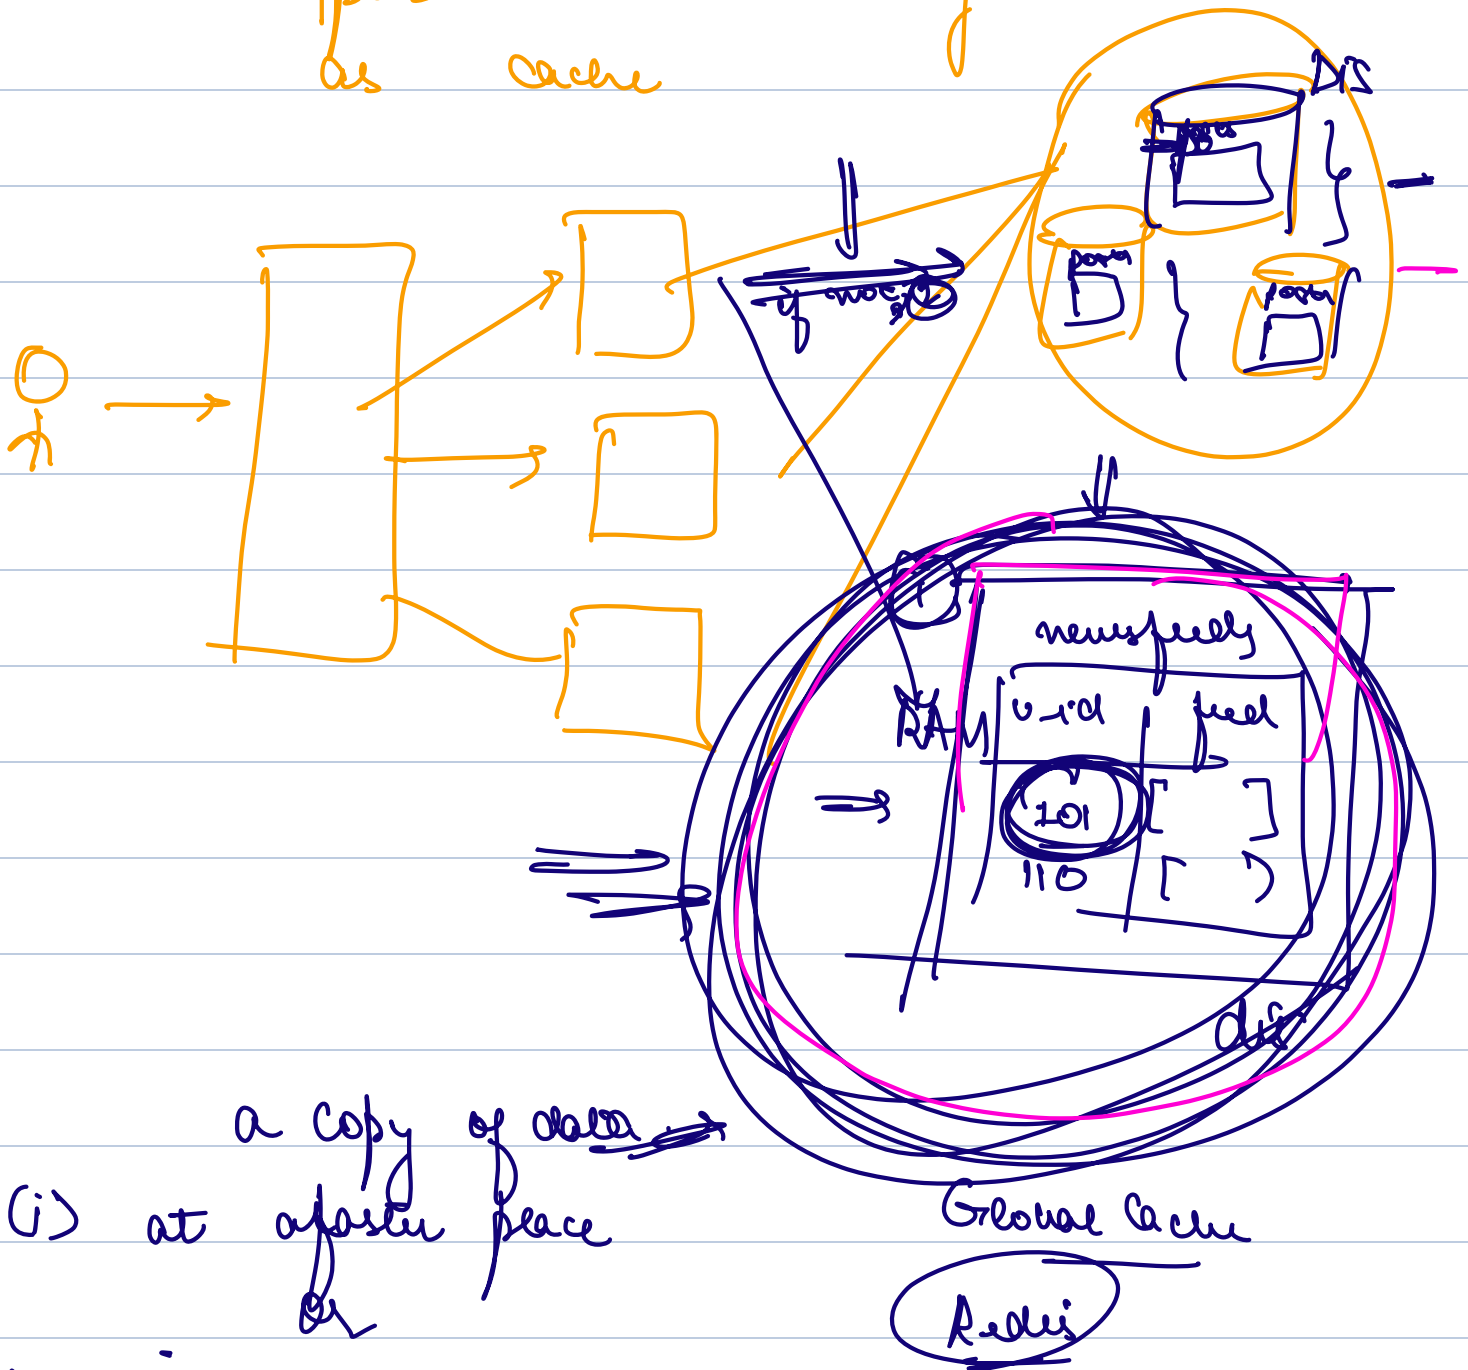 as cache
DBS
posts
posts
posts
newsfeeds
RAM
u-id feed
101 [ ]
110 [ ]
a copy of data
(i) at a faster place
or
Global Cache
Redis